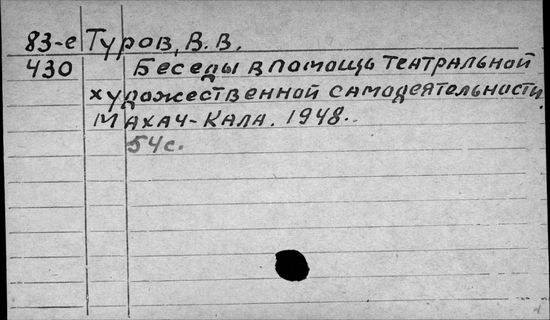 83-е Туров, В. В.
430 Беседы в помощь театральной
художественной самодеятельности.
Махач-Кала. 1948.
54с.